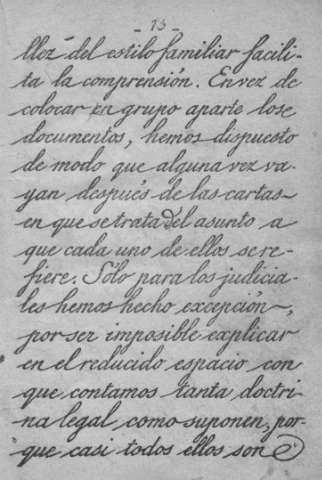 - 13 -
llez del estilo familiar facili-
ta la comprensión. En vez de
colocar en grupo aparte los
documentos, hemos dispuesto
de modo que alguna vez va-
yan después de las cartas
en que se trata del asunto a
que cada uno de ellos se re-
fiere. Sólo para los judicia-
les hemos hecho excepción,
por ser imposible explicar
en el reducido espacio con
que contamos tanta doctri
na legal como suponen, por-
que casi todos ellos son